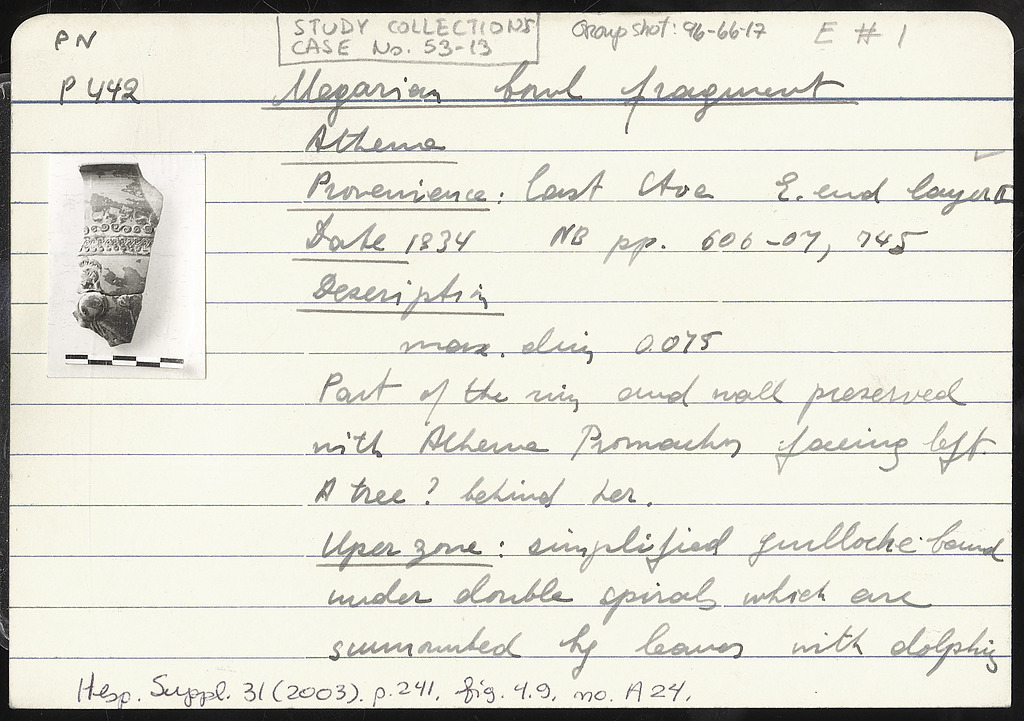 PN
STUDY COLLECTIONS
CASE No. 53-13
Group shot: 96-66-17
E # 1
P 442
Megarian bowl fragment
Athena
Provenience: East E. end layer II
Date 1934 NB pp. 606-07, 745
Description
max. dim 0.075
Part of the rim and wall preserved
with Athena Promachos facing left.
A tree? behind her.
Uper zone: simplified guilloche band
under double spirals which are
surmounted by leaves with dolphins
Hesp. Suppl. 31 (2003). p. 241. fig. 49. no. A 24.